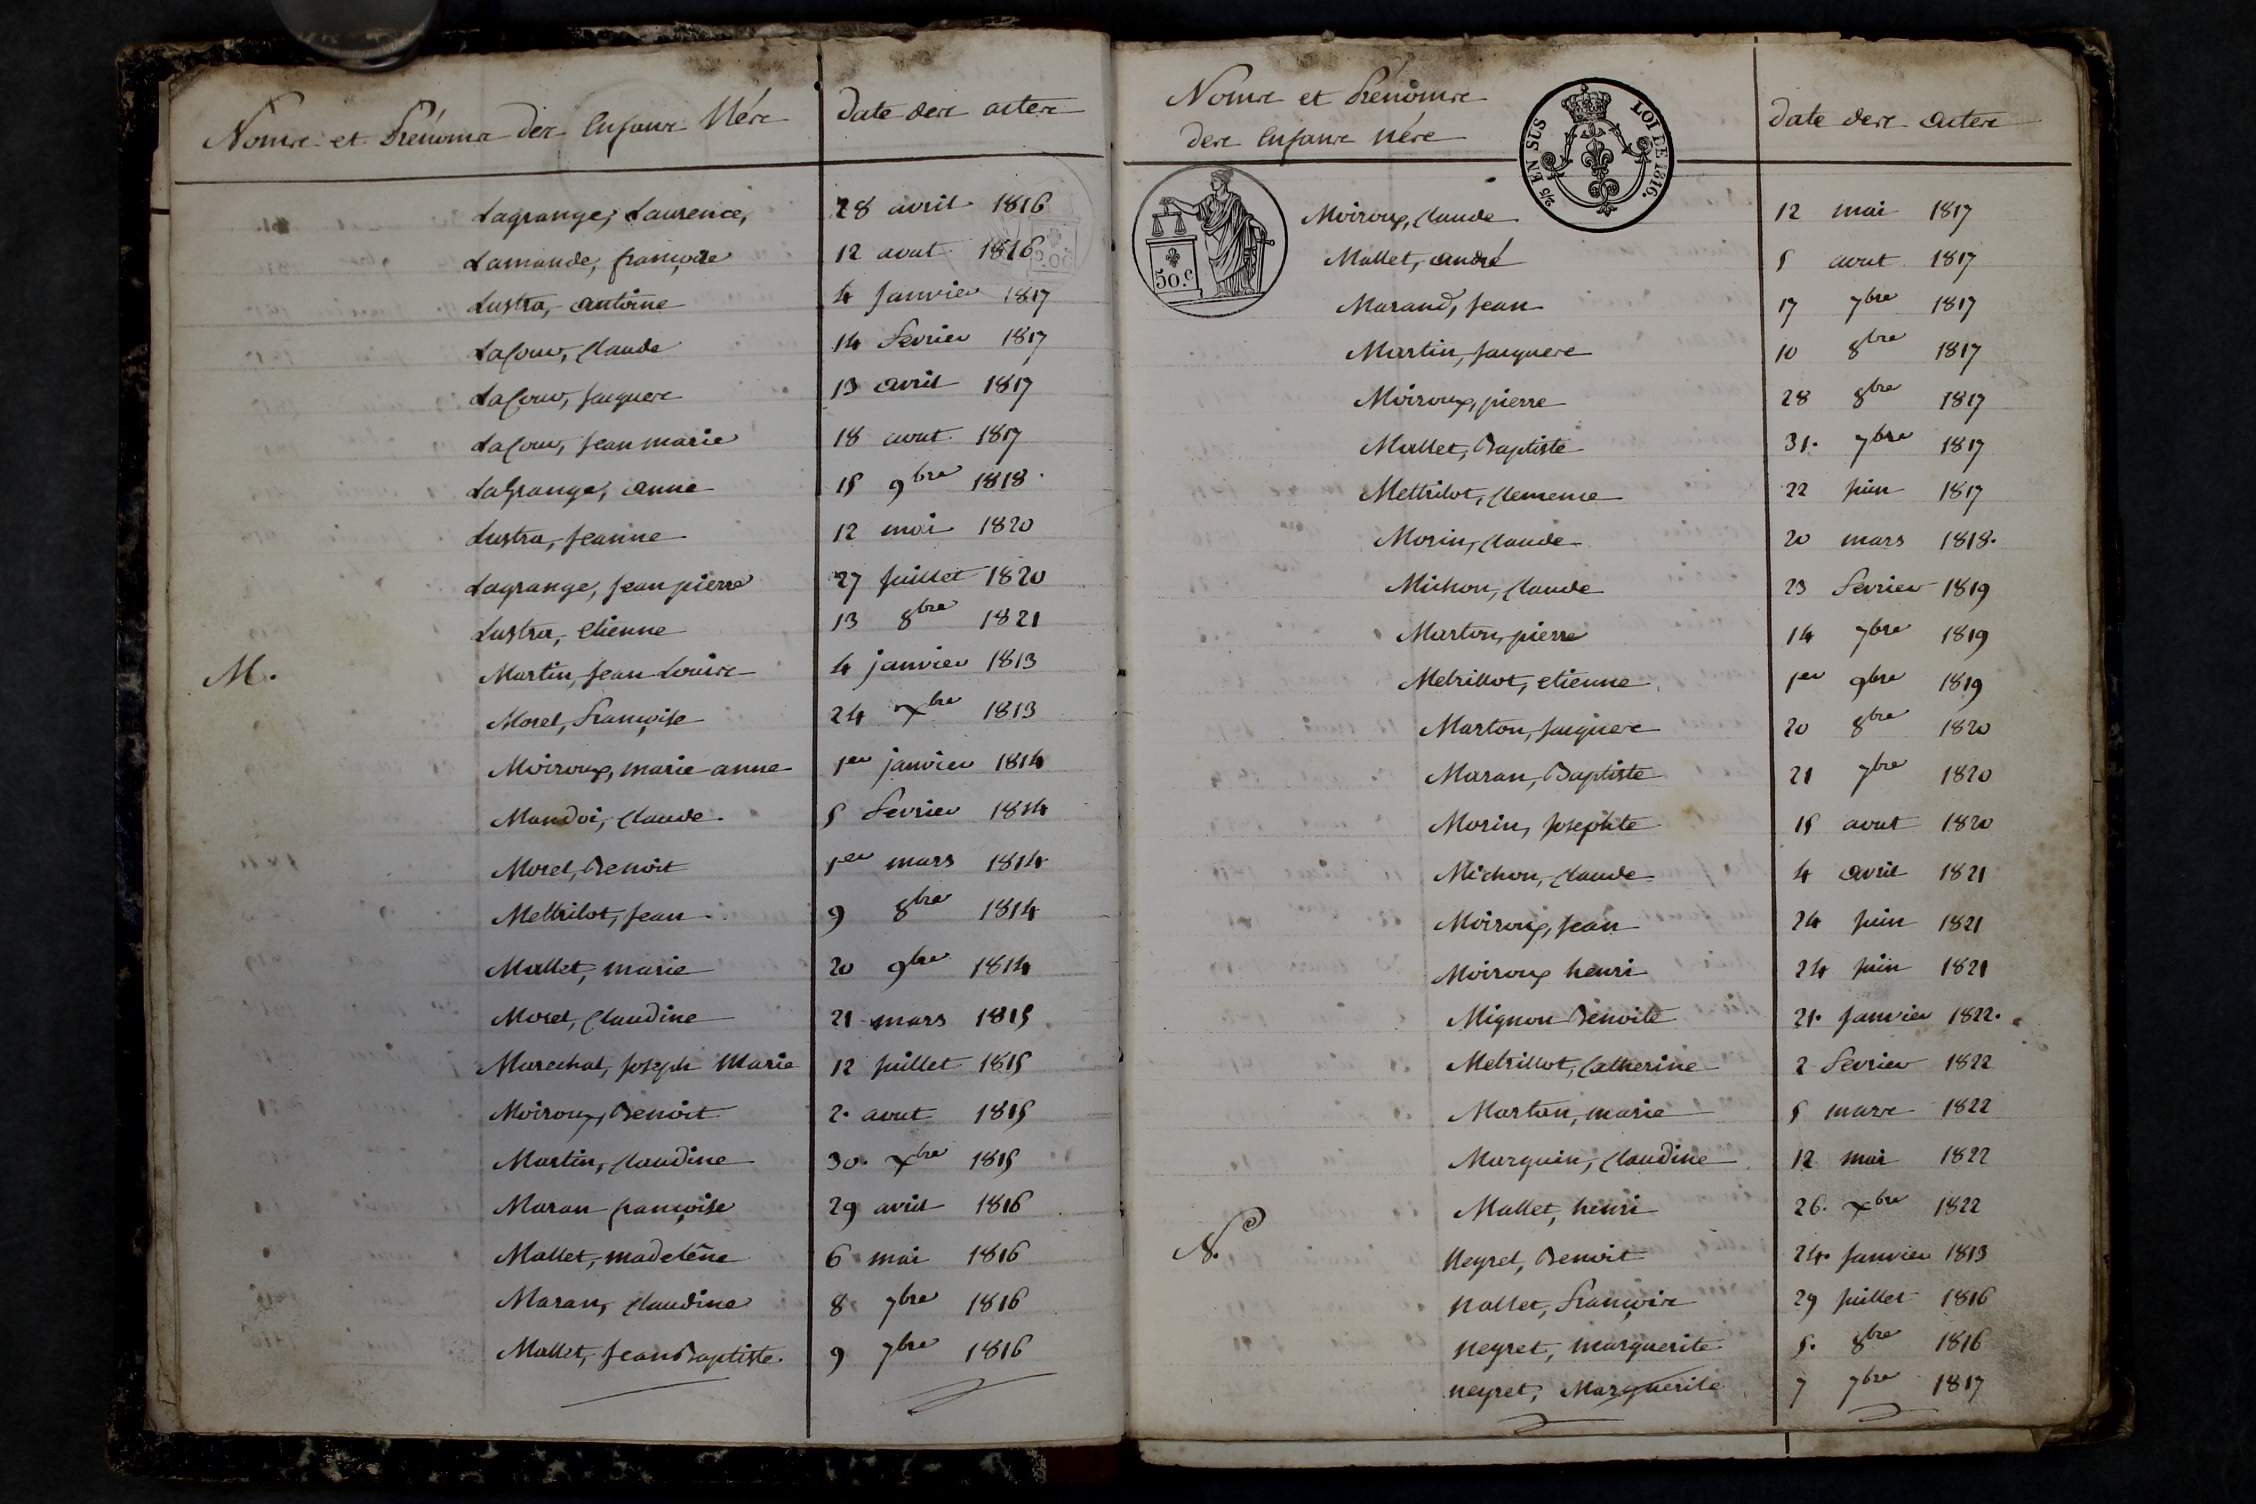 Noms et Prénoms des Enfans Nés
date des actes
Lagrange, Laurence, 28 avril 1816
Lamande, françoise 12 aout 1816
Lustra, antoine 4 Janvier 1817
LaCour, Claude 14 Fevrier 1817
LaCour, Jacques 13 avril 1817
LaCour, Jean marie 18 aout 1817
LaGrange, anne 15 9bre 1818.
Lustra, Jeanne 12 mai 1820
Lagrange, Jean pierre 27 Juillet 1820
Lustra, etienne 13 8bre 1821
M. Martin, Jean Louis 4 janvier 1813
Morel, Françoise 24 Xbre 1813
Moiroux, marie anne 1er janvier 1814
Mandoi, Claude 5 Fevrier 1814
Morel, Benoit 1er mars 1814
Mettrilot, Jean 9 8bre 1814
Mallet, marie 20 9bre 1814
Morel, Claudine 21 mars 1815
Marechal, Joseph Marie 12 Juillet 1815
Moiroux, Benoit 2. aout 1815
Martin, Claudine 30. Xbre 1815
Maran françoise 29 avril 1816
Mallet, madelêne 6 mai 1816
Maran, Claudine 8 7bre 1816
Mallet, Jean Baptiste. 9 7bre 1816
Noms et Prénoms
des Enfans nés
date des actes
2/5 EN SUS LOI DE 1816.
50.c
Moiroux, Claude 12 mai 1817
Mallet, andré 5 aout 1817
Marand, Jean 17 7bre 1817
Martin, Jacques 10 8bre 1817
Moiroux, pierre 28 8bre 1817
Mallet, Baptiste 31. 7bre 1817
Mettrilot, Clemence 22 Juin 1817
Morin, Claude 20 mars 1818.
Michon, Claude 23 Fevrier 1819
Marton, pierre 14 7bre 1819
Metrillot, etienne 1er 9bre 1819
Marton, Jacques 20 8bre 1820
Maran, Baptiste 21 7bre 1820
Morin, Josephte 15 aout 1820
Michon, Claude 4 avril 1821
Moiroux, Jean 24 Juin 1821
Moiroux henri 24 Juin 1821
Mignon Benoite 21. Janvier 1822.
Metrillot, Catherine 2 Fevrier 1822
Martan, marie 5 mars 1822
Marguin, Claudine 12 mai 1822
Mallet, henri 26. Xbre 1822
N. Neyret, Benoit 24. Janvier 1813
Nallet, François 29 Juillet 1816
Neyret, Marguerite 5. 8bre 1816
Neyret, Marguerite 7 7bre 1817